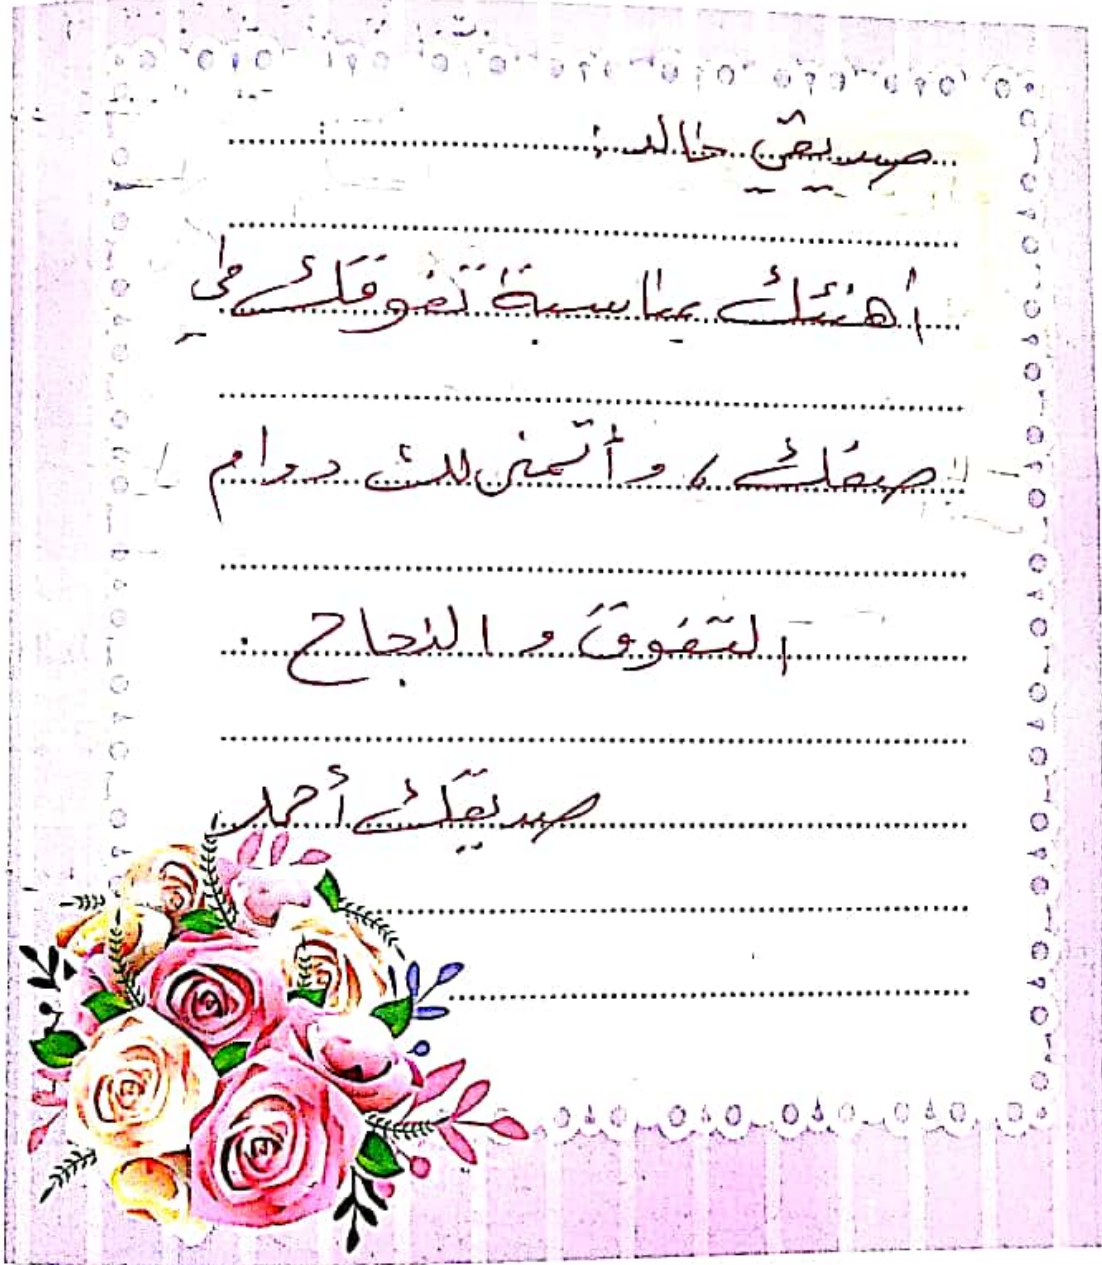 صديقي خالد:
أهنئك بمناسبة تفوقك في
صفك، وأتمنى لك دوام
التفوق و النجاح.
صديقك أحمد